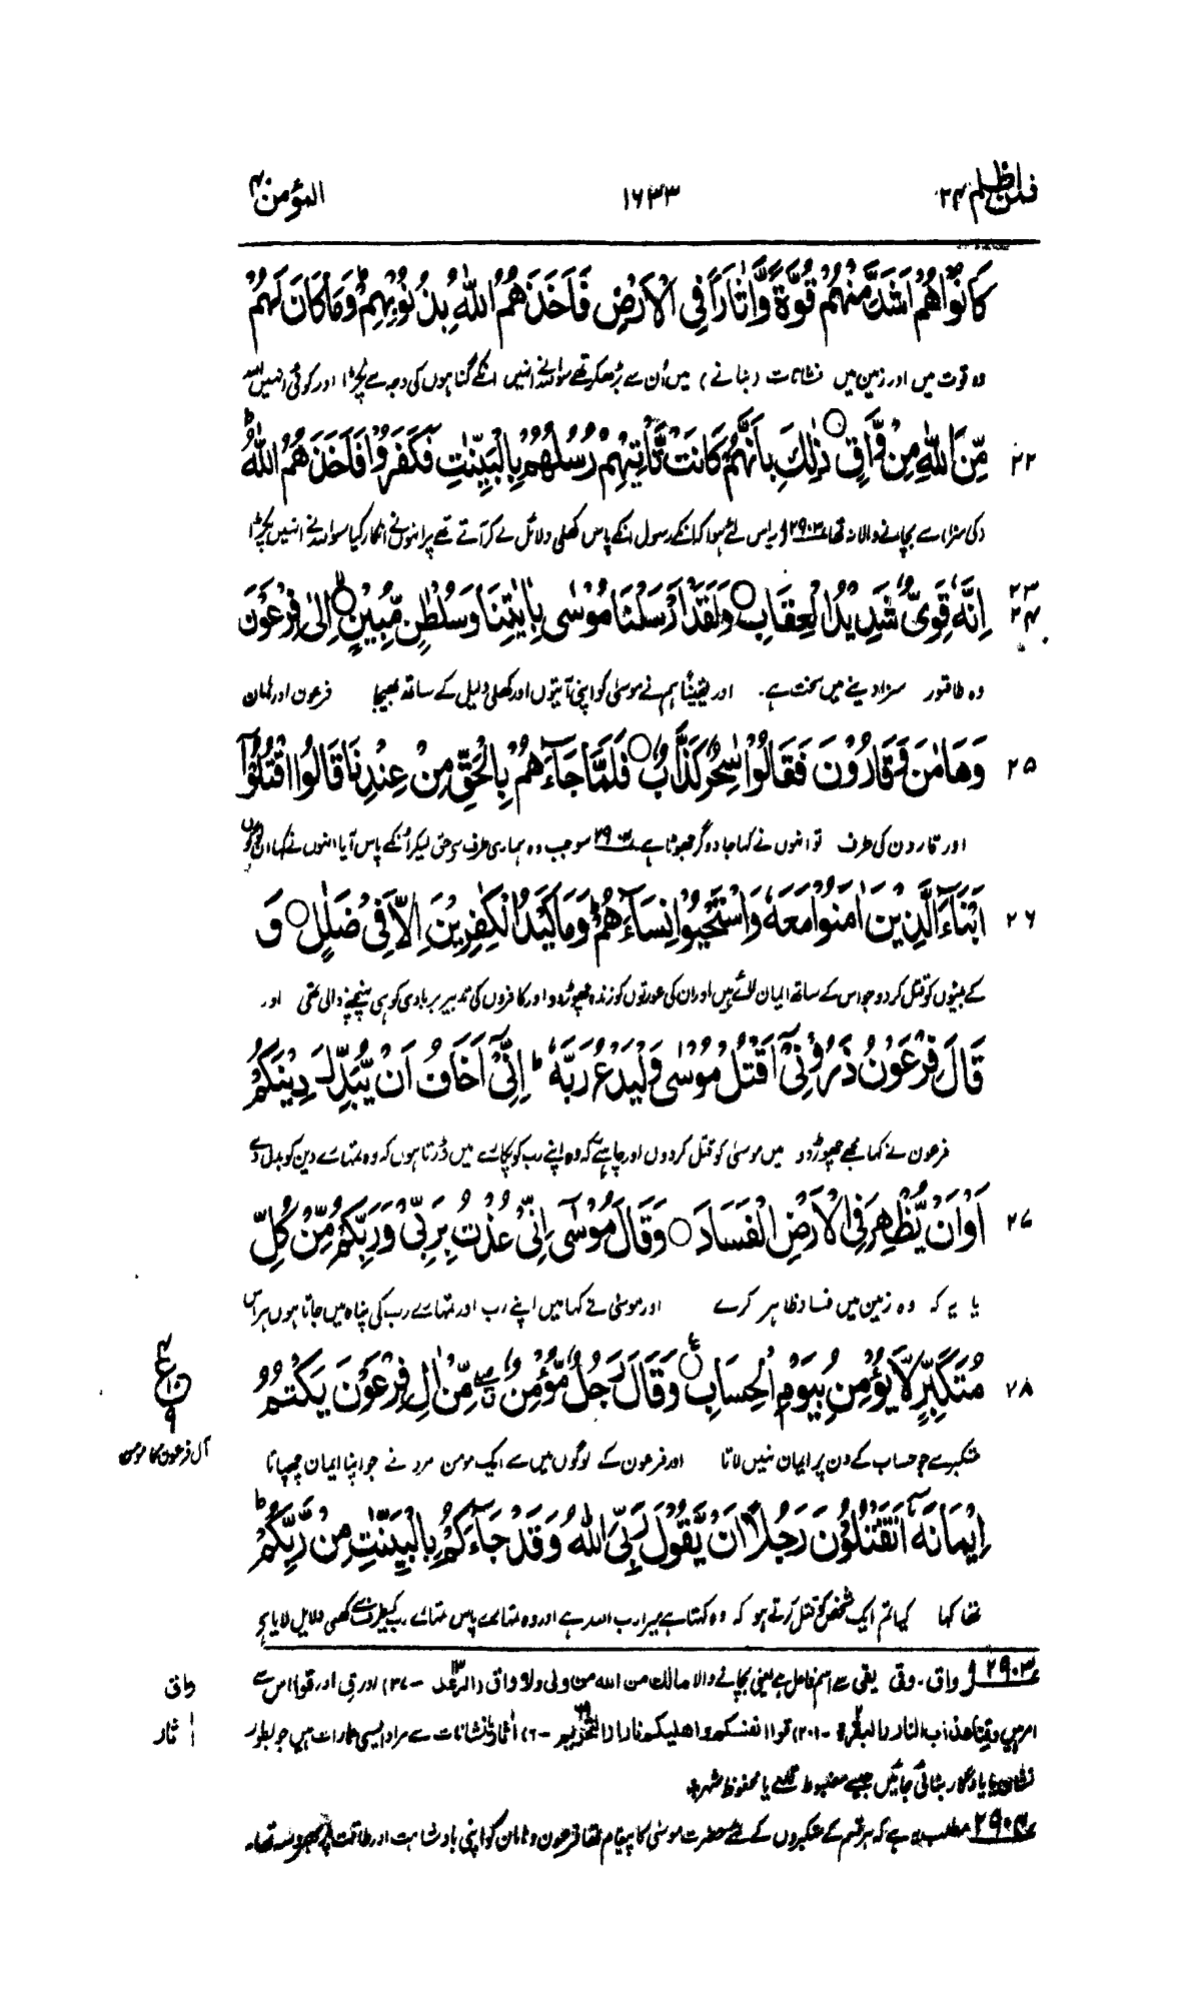 فمن اظلم ۲۴ ۱۶۳۳ المؤمن ۴۰
كَانُوْا هُمْ اَشَدَّ مِنْهُمْ قُوَّةً وَّاٰثَارًا فِى الْاَرْضِ فَاَخَذَهُمُ اللّٰهُ بِذُنُوْبِهِمْ ؕ وَمَا كَانَ لَهُمْ
وہ قوت میں اور زمین میں نشانات (بنانے) میں اُن سے بڑھکر تھے سو اللہ نے انہیں انکے گناہوں کی وجہ سے پکڑا اور کوئی انہیں اللہ
۲۲ مِّنَ اللّٰهِ مِنْ وَّاقٍ ○ ذٰلِكَ بِاَنَّهُمْ كَانَتْ تَّاْتِيْهِمْ رُسُلُهُمْ بِالْبَيِّنٰتِ فَكَفَرُوْا فَاَخَذَهُمُ اللّٰهُ ؕ
(کی سزا) سے بچانے والا نہ تھا ۲۹۰۳ یہ اس لئے ہوا کہ انکے رسول انکے پاس کھلی دلائل لے کر آتے تھے پر انہوں نے انکار کیا سو اللہ نے انہیں پکڑا
۲۳ ۲۴ اِنَّهٗ قَوِىٌّ شَدِيْدُ الْعِقَابِ ○ وَلَقَدْ اَرْسَلْنَا مُوْسٰى بِاٰيٰتِنَا وَسُلْطٰنٍ مُّبِيْنٍ ○ اِلٰى فِرْعَوْنَ
وہ طاقتور سزا دینے میں سخت ہے۔ اور یقیناً ہم نے موسیٰ کو اپنی آیتوں اور کھلی دلیل کے ساتھ بھیجا فرعون اور ہامان
۲۵ وَهَامٰنَ وَقَارُوْنَ فَقَالُوْا سٰحِرٌ كَذَّابٌ ○ فَلَمَّا جَآءَهُمْ بِالْحَقِّ مِنْ عِنْدِنَا قَالُوا اقْتُلُوْٓا
اور قارون کی طرف تو انہوں نے کہا جادوگر جھوٹا ہے ۲۹۰۴ سو جب وہ ہماری طرف سے حق لیکر انکے پاس آیا انہوں نے کہا ان لوگوں
۲۶ اَبْنَآءَ الَّذِيْنَ اٰمَنُوْا مَعَهٗ وَاسْتَحْيُوْا نِسَآءَهُمْ ؕ وَمَا كَيْدُ الْكٰفِرِيْنَ اِلَّا فِىْ ضَلٰلٍ ○ وَ
کے بیٹوں کو قتل کردو جو اس کے ساتھ ایمان لائے ہیں اور ان کی عورتوں کو زندہ چھوڑدو اور کافروں کی تدبیر بربادی کو ہی پہنچنے والی تھی اور
قَالَ فِرْعَوْنُ ذَرُوْنِىْٓ اَقْتُلْ مُوْسٰى وَلْيَدْعُ رَبَّهٗ ؕ اِنِّىْٓ اَخَافُ اَنْ يُّبَدِّلَ دِيْنَكُمْ
فرعون نے کہا مجھے چھوڑدو میں موسیٰ کو قتل کردوں اور چاہیے کہ وہ اپنے رب کو پکارے میں ڈرتا ہوں کہ وہ تمہارے دین کو بدل دے
۲۷ اَوْ اَنْ يُّظْهِرَ فِى الْاَرْضِ الْفَسَادَ ○ وَقَالَ مُوْسٰٓى اِنِّىْ عُذْتُ بِرَبِّىْ وَرَبِّكُمْ مِّنْ كُلِّ
یا یہ کہ وہ زمین میں فساد ظاہر کرے اور موسیٰ نے کہا میں اپنے رب اور تمہارے رب کی پناہ میں جاتا ہوں ہر اس
۲۸ مُتَكَبِّرٍ لَّا يُؤْمِنُ بِيَوْمِ الْحِسَابِ ○ وَقَالَ رَجُلٌ مُّؤْمِنٌ مِّنْ اٰلِ فِرْعَوْنَ يَكْتُمُ
متکبر سے جو حساب کے دن پر ایمان نہیں لاتا اور فرعون کے لوگوں میں سے ایک مومن مرد نے جو اپنا ایمان چھپاتا
آل فرعون کا مومن
اِيْمَانَهٗٓ اَتَقْتُلُوْنَ رَجُلًا اَنْ يَّقُوْلَ رَبِّىَ اللّٰهُ وَقَدْ جَآءَكُمْ بِالْبَيِّنٰتِ مِنْ رَّبِّكُمْ ؕ
تھا کہا کیا تم ایک شخص کو قتل کرتے ہو کہ وہ کہتا ہے میرا رب اللہ ہے اور وہ تمہارے پاس تمہارے رب کیطرف سے کھلی دلایل لایا ہے
۲۹۰۳ واق۔ وقی یقی سے اسم فاعل ہے یعنی بچانے والا مالك من الله من ولی ولا واق (الرعد ۱۳-۳۷) اور ق اور قوا اس سے واق
امر ہیں وقنا عذاب النار (البقرة ۲۰۱) قوا انفسكم واهليكم نارا (التحریم ۶) اٰثار نشانات سے مراد ایسی عمارات ہیں جو بطور اٰثار
نشان یا یادگار بنائی جائیں جیسے مضبوط قلعے یا محفوظ شہر
۲۹۰۴ مطلب یہ ہے کہ ہر قسم کے متکبروں کے لئے حضرت موسیٰ کا پیغام تھا فرعون و ہامان کو اپنی بادشاہت اور طاقت پر بھروسہ تھا۔